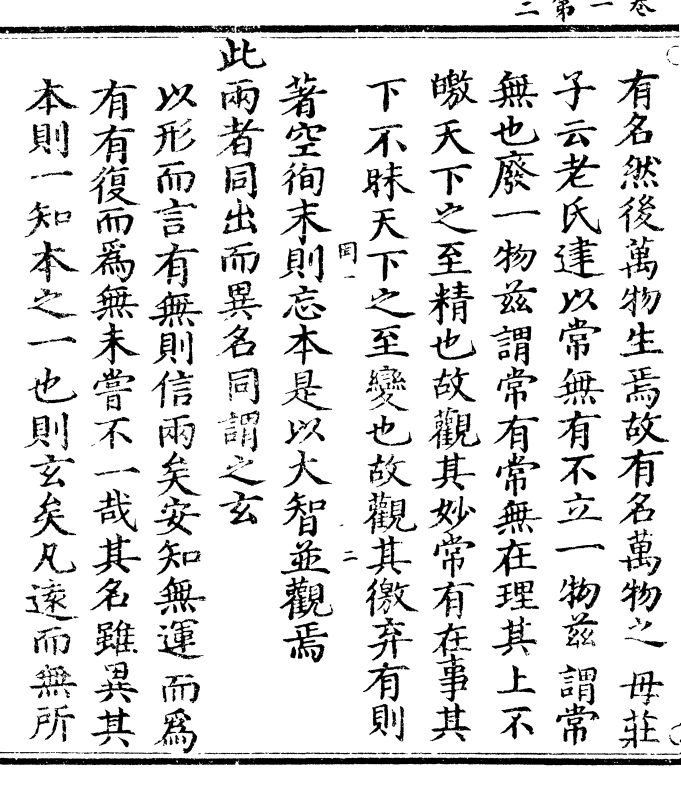 卷一第二
有名然後萬物生焉故有名萬物之母莊
子云老氏建以常無有不立一物茲謂常
無也廢一物茲謂常有常無在理其上不
皦天下之至精也故觀其妙常有在事其
下不昧天下之至變也故觀其徼弃有則
同一
二
著空徇末則忘本是以大智並觀焉
此兩者同出而異名同謂之玄
以形而言有無則信兩矣安知無運而為
有有復而為無未嘗不一哉其名雖異其
本則一知本之一也則玄矣凡遠而無所